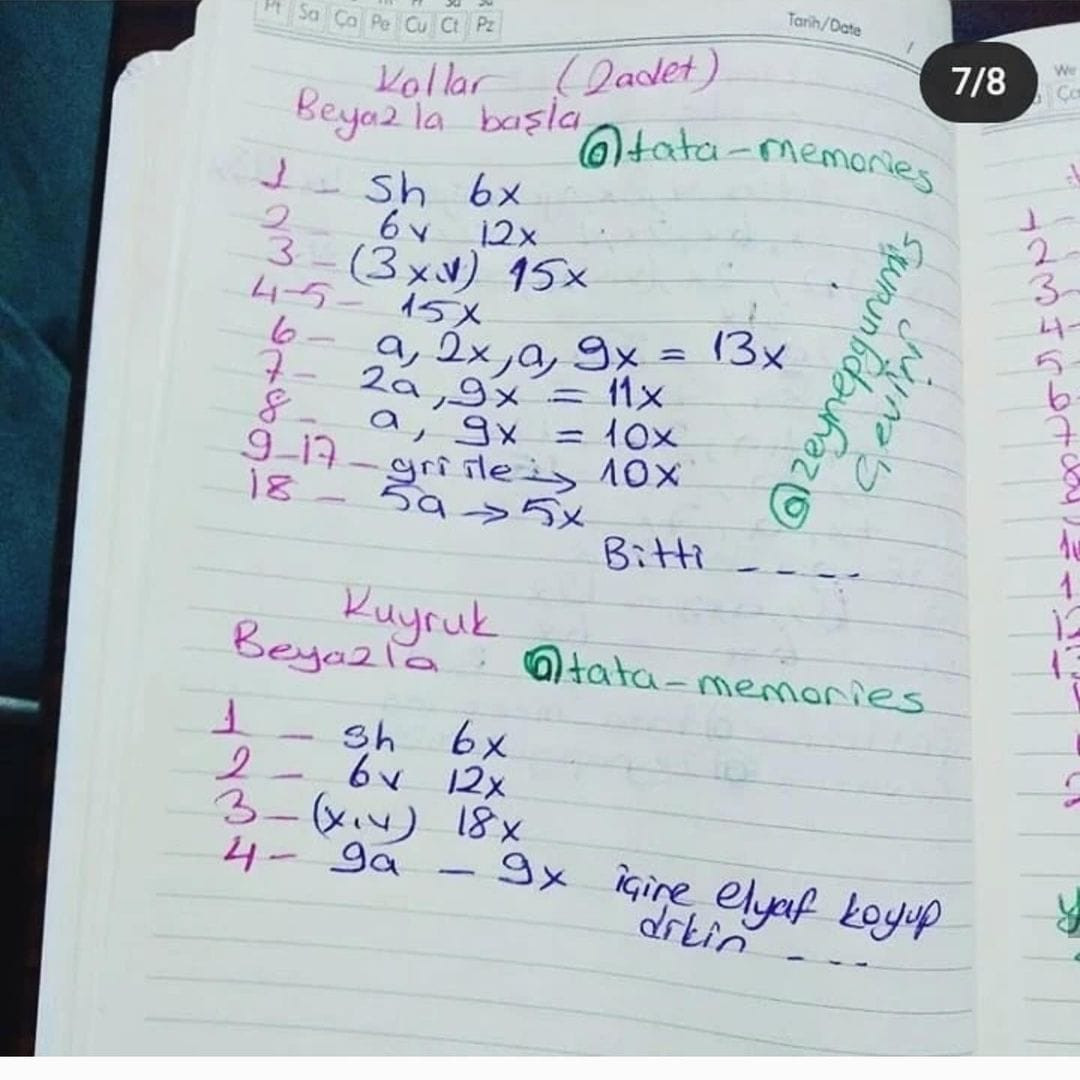 Pt Sa Ça Pe Cu Ct Pz
Tarih/Date
7/8
Kollar (2adet)
Beyazla başla
@tata-memories
1 - sh 6x
2 - 6v 12x
3 - (3x,v) 15x
4-5 - 15x
6 - a, 2x, a, 9x = 13x
7 - 2a, 9x = 11x
8 - a, 9x = 10x
9-17 - gri ile → 10x
18 - 5a → 5x
Bitti ----
@zeynepgurumis
çeviri
Kuyruk
Beyazla :
@tata-memories
1 - sh 6x
2 - 6v 12x
3 - (x,v) 18x
4 - 9a - 9x içine elyaf koyup
dikin ---
We
1-
2-
3-
4-
5-
6-
7-
8